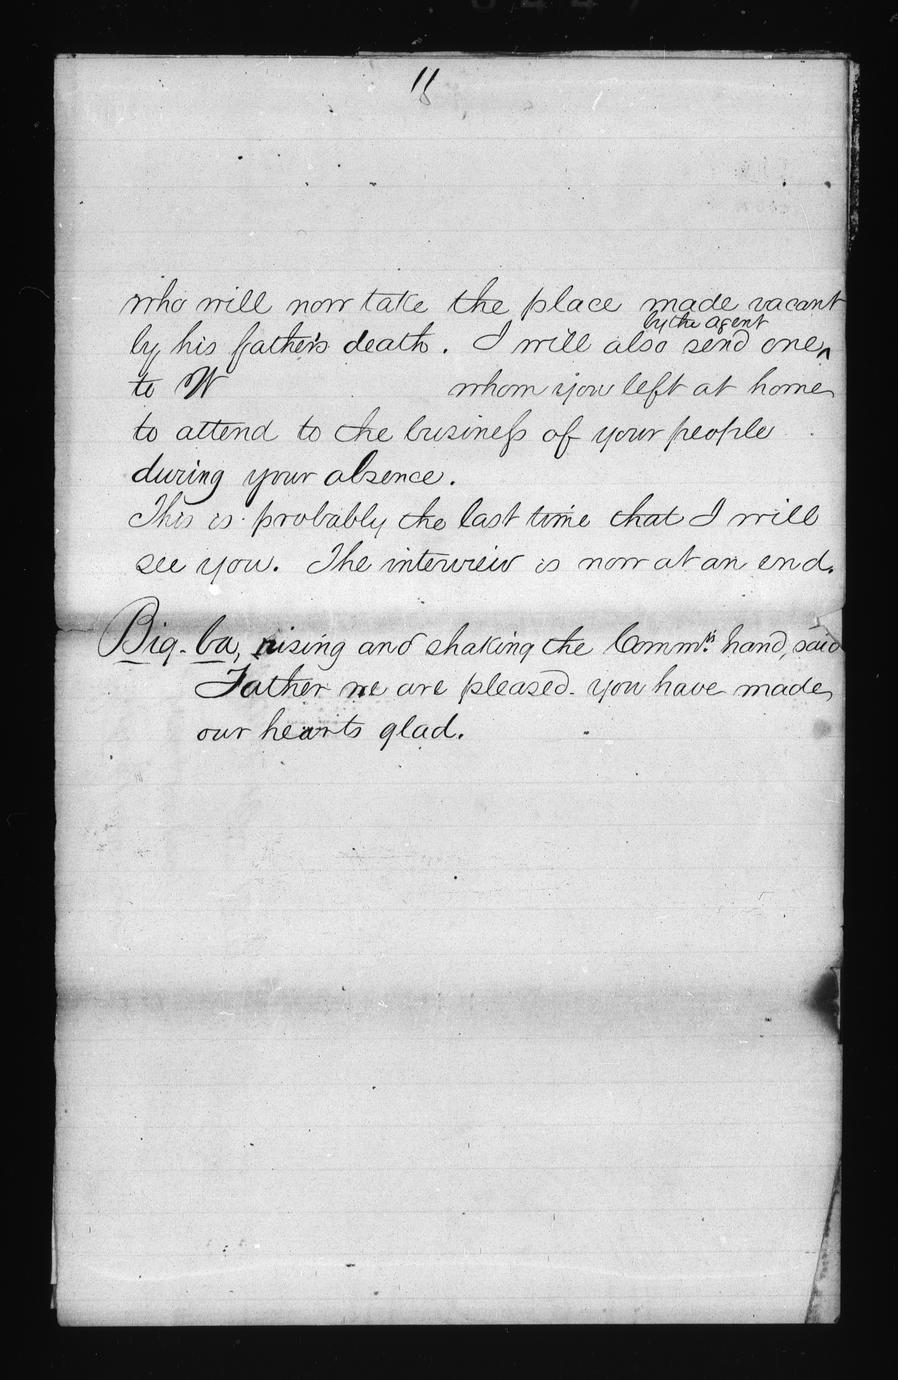 11
who will now take the place made vacant
by his father's death. I will also send one ^by the agent
to W whom you left at home
to attend to the business of your people
during your absence.
This is probably the last time that I will
see you. The interview is now at an end.
Big-ba, rising and shaking the Commrs. hand, said
Father we are pleased. you have made
our hearts glad.